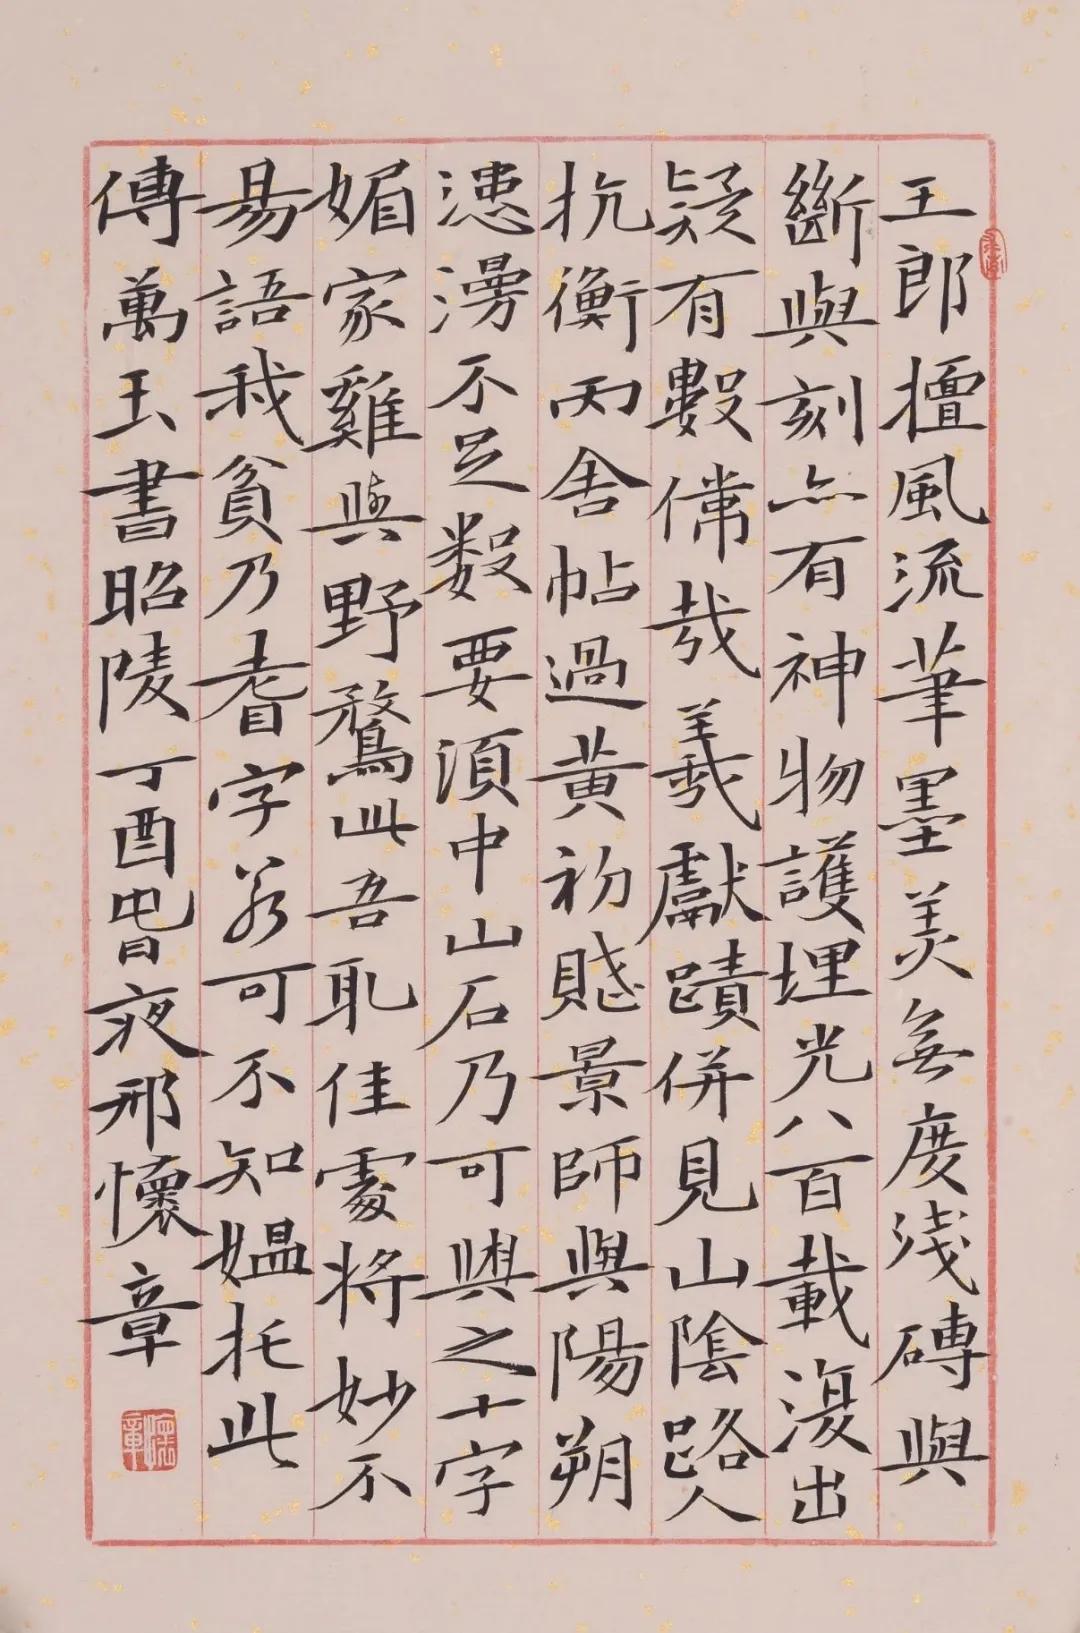 王郎擅風流筆墨美無度淺磚與
斷與刻亦有神物護埋光八百載復出
疑有數哉羲獻蹟併見山陰路人
抗衡丙舍帖過黃初賤景師與陽朔
漶漫不足數要須中山石乃可與之十字
媚家雞與野鶩此吾耴佳處將妙不
易語我貧乃耆字若可不知媼托此
傳萬玉書昭陵丁酉春夜邢懷章
懷章